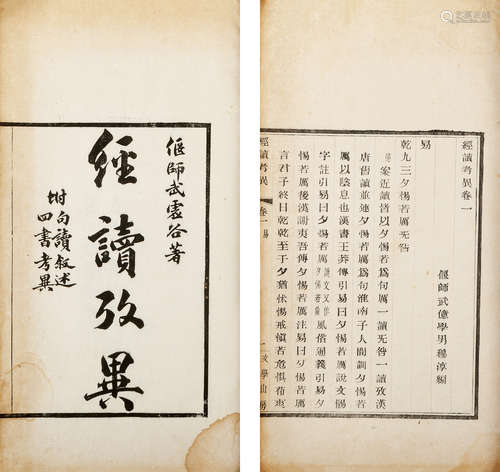 偃師武虛谷著
經讀攷異
坿句讀敘述
四書考異
經讀考異卷一
偃師武億學 男穆淳編
易
乾九三夕惕若厲无咎
案近讀皆以夕惕若爲句厲一讀无咎一讀攷漢
唐舊讀並連夕惕若厲爲句淮南子人間訓夕惕若
厲以陰息也漢書王莽傳引易曰夕惕若厲說文惕
字註引易曰夕惕若厲風俗通義引易夕
惕若厲後漢謝夷吾傳夕惕若厲注易曰夕惕若厲
言君子終日乾乾至于夕猶怵惕戒懼若危
經讀考異 卷一 易